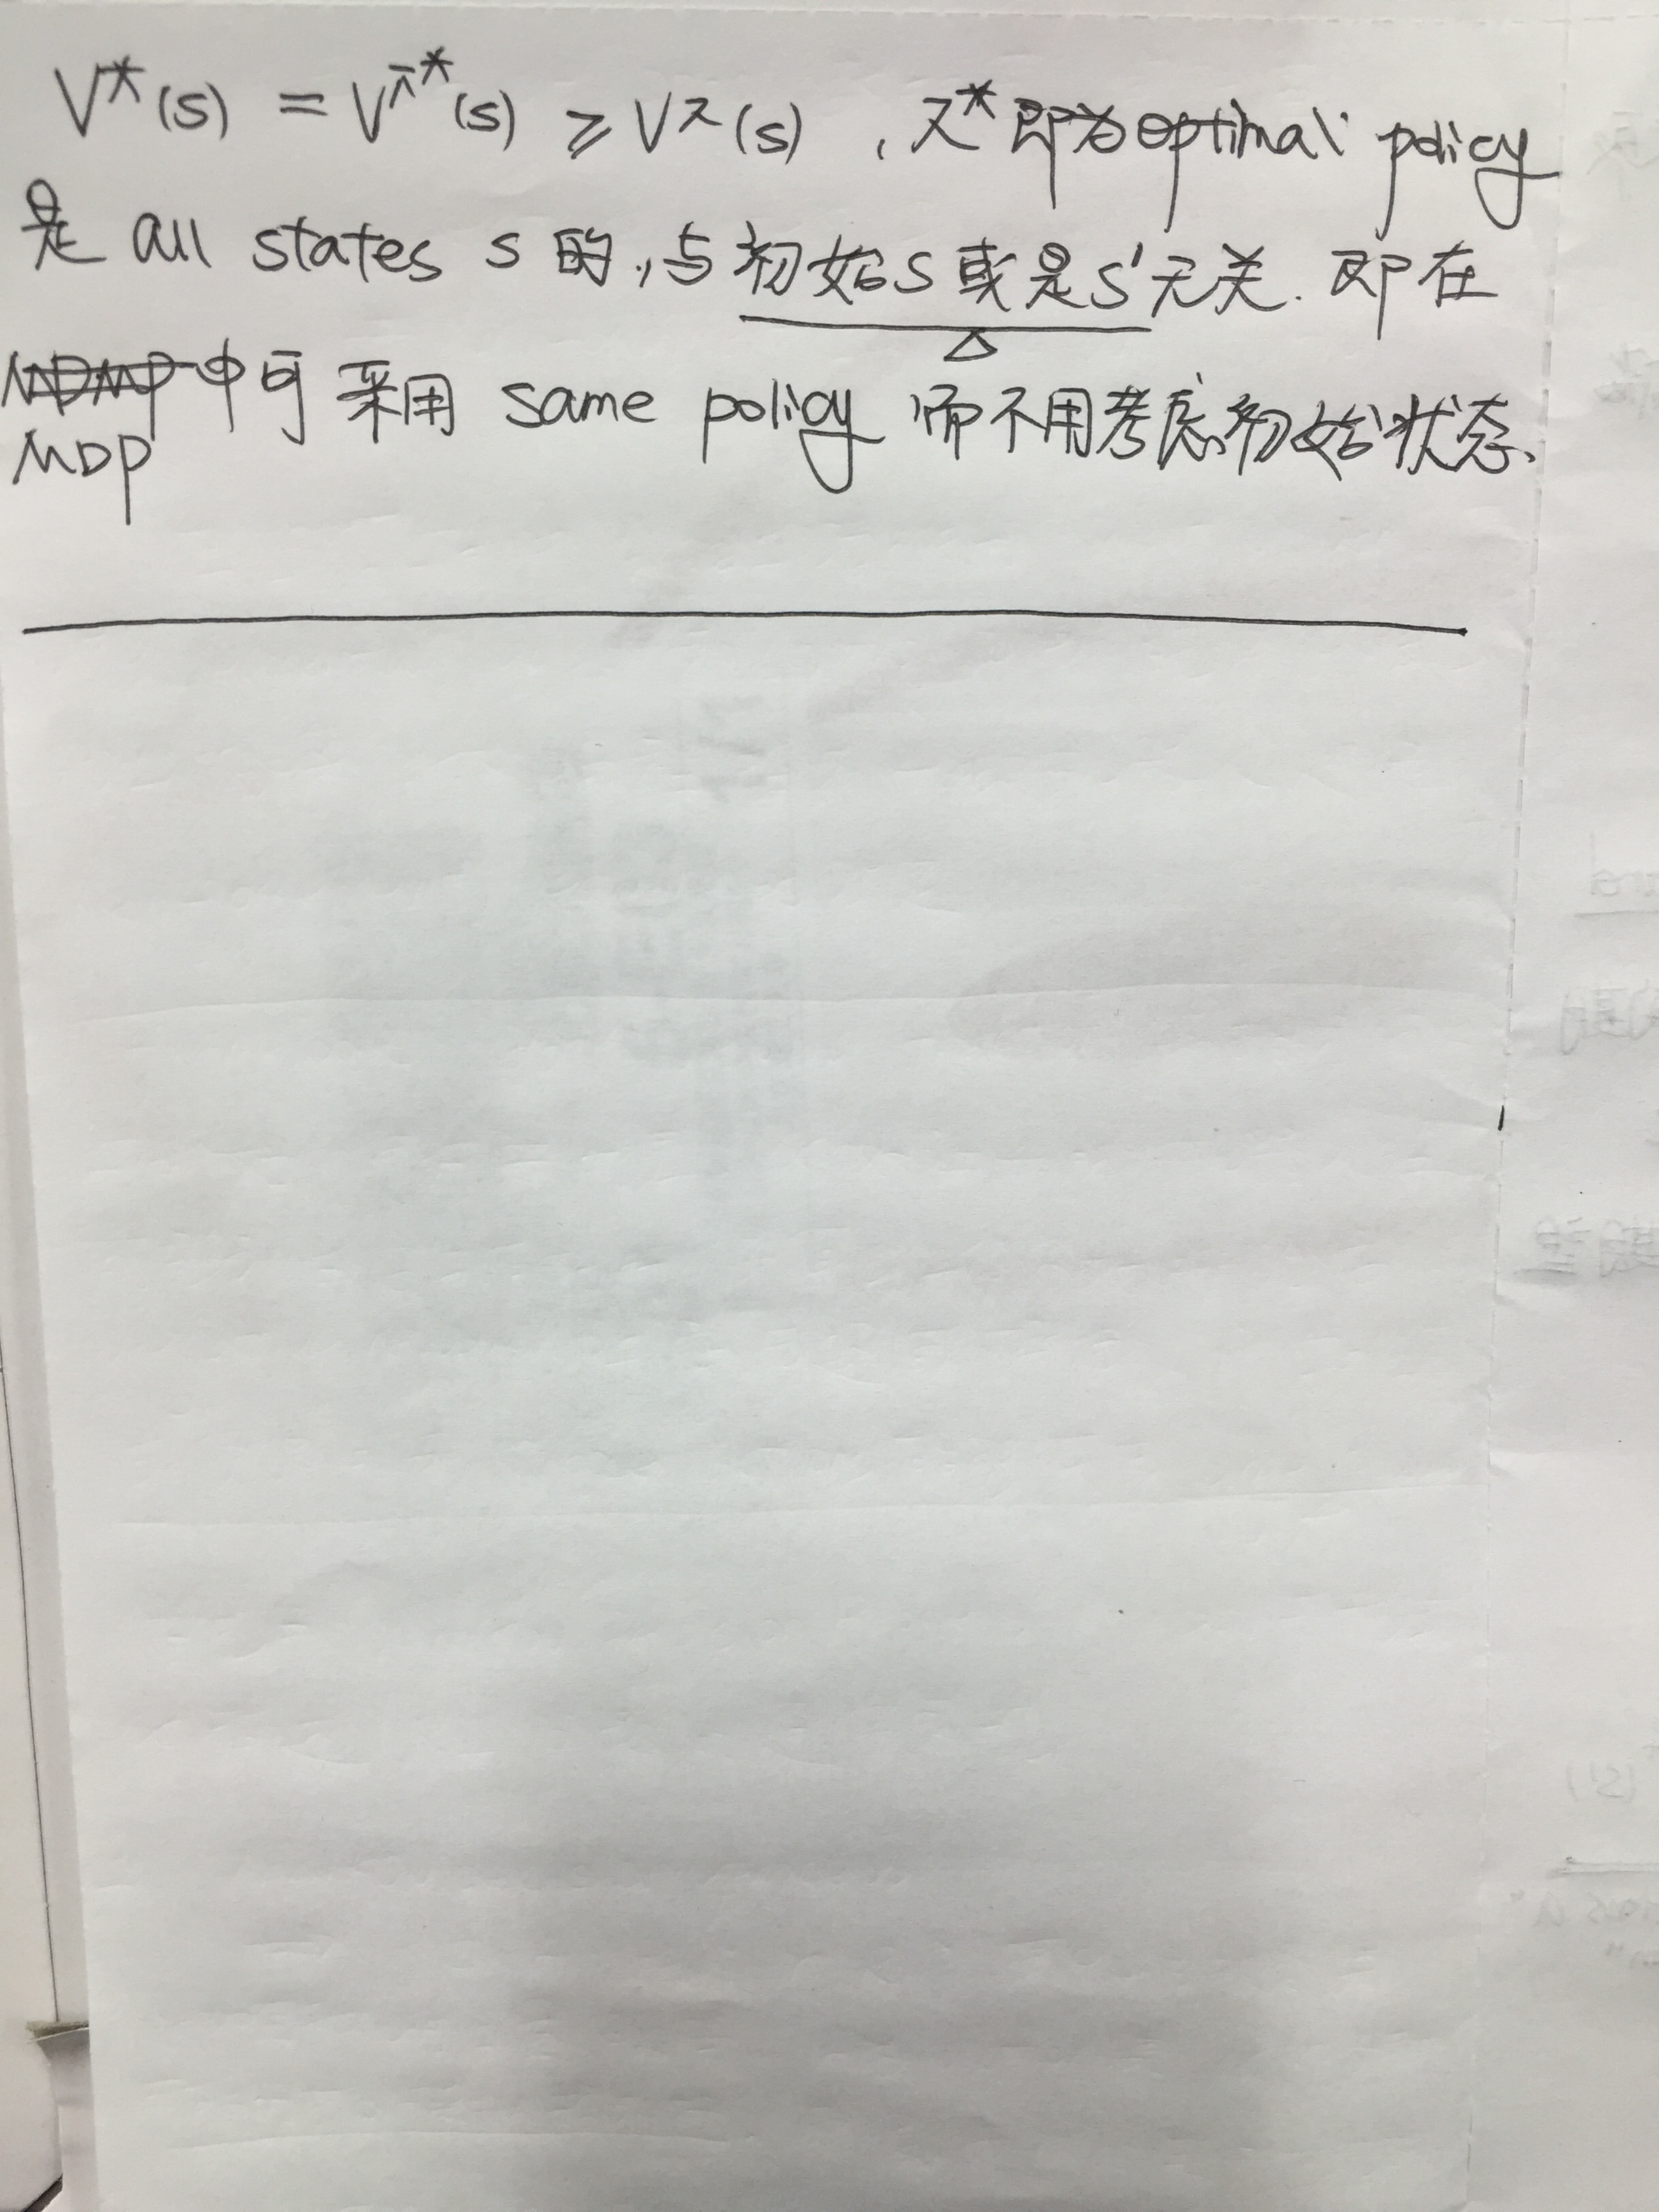 V*(s) = V^π*(s) ≥ V^π(s) , π* 即为 optimal policy
是 all states s 的, 与初始s或是s'无关. 即在
MDP中可采用 same policy 而不用考虑初始状态.